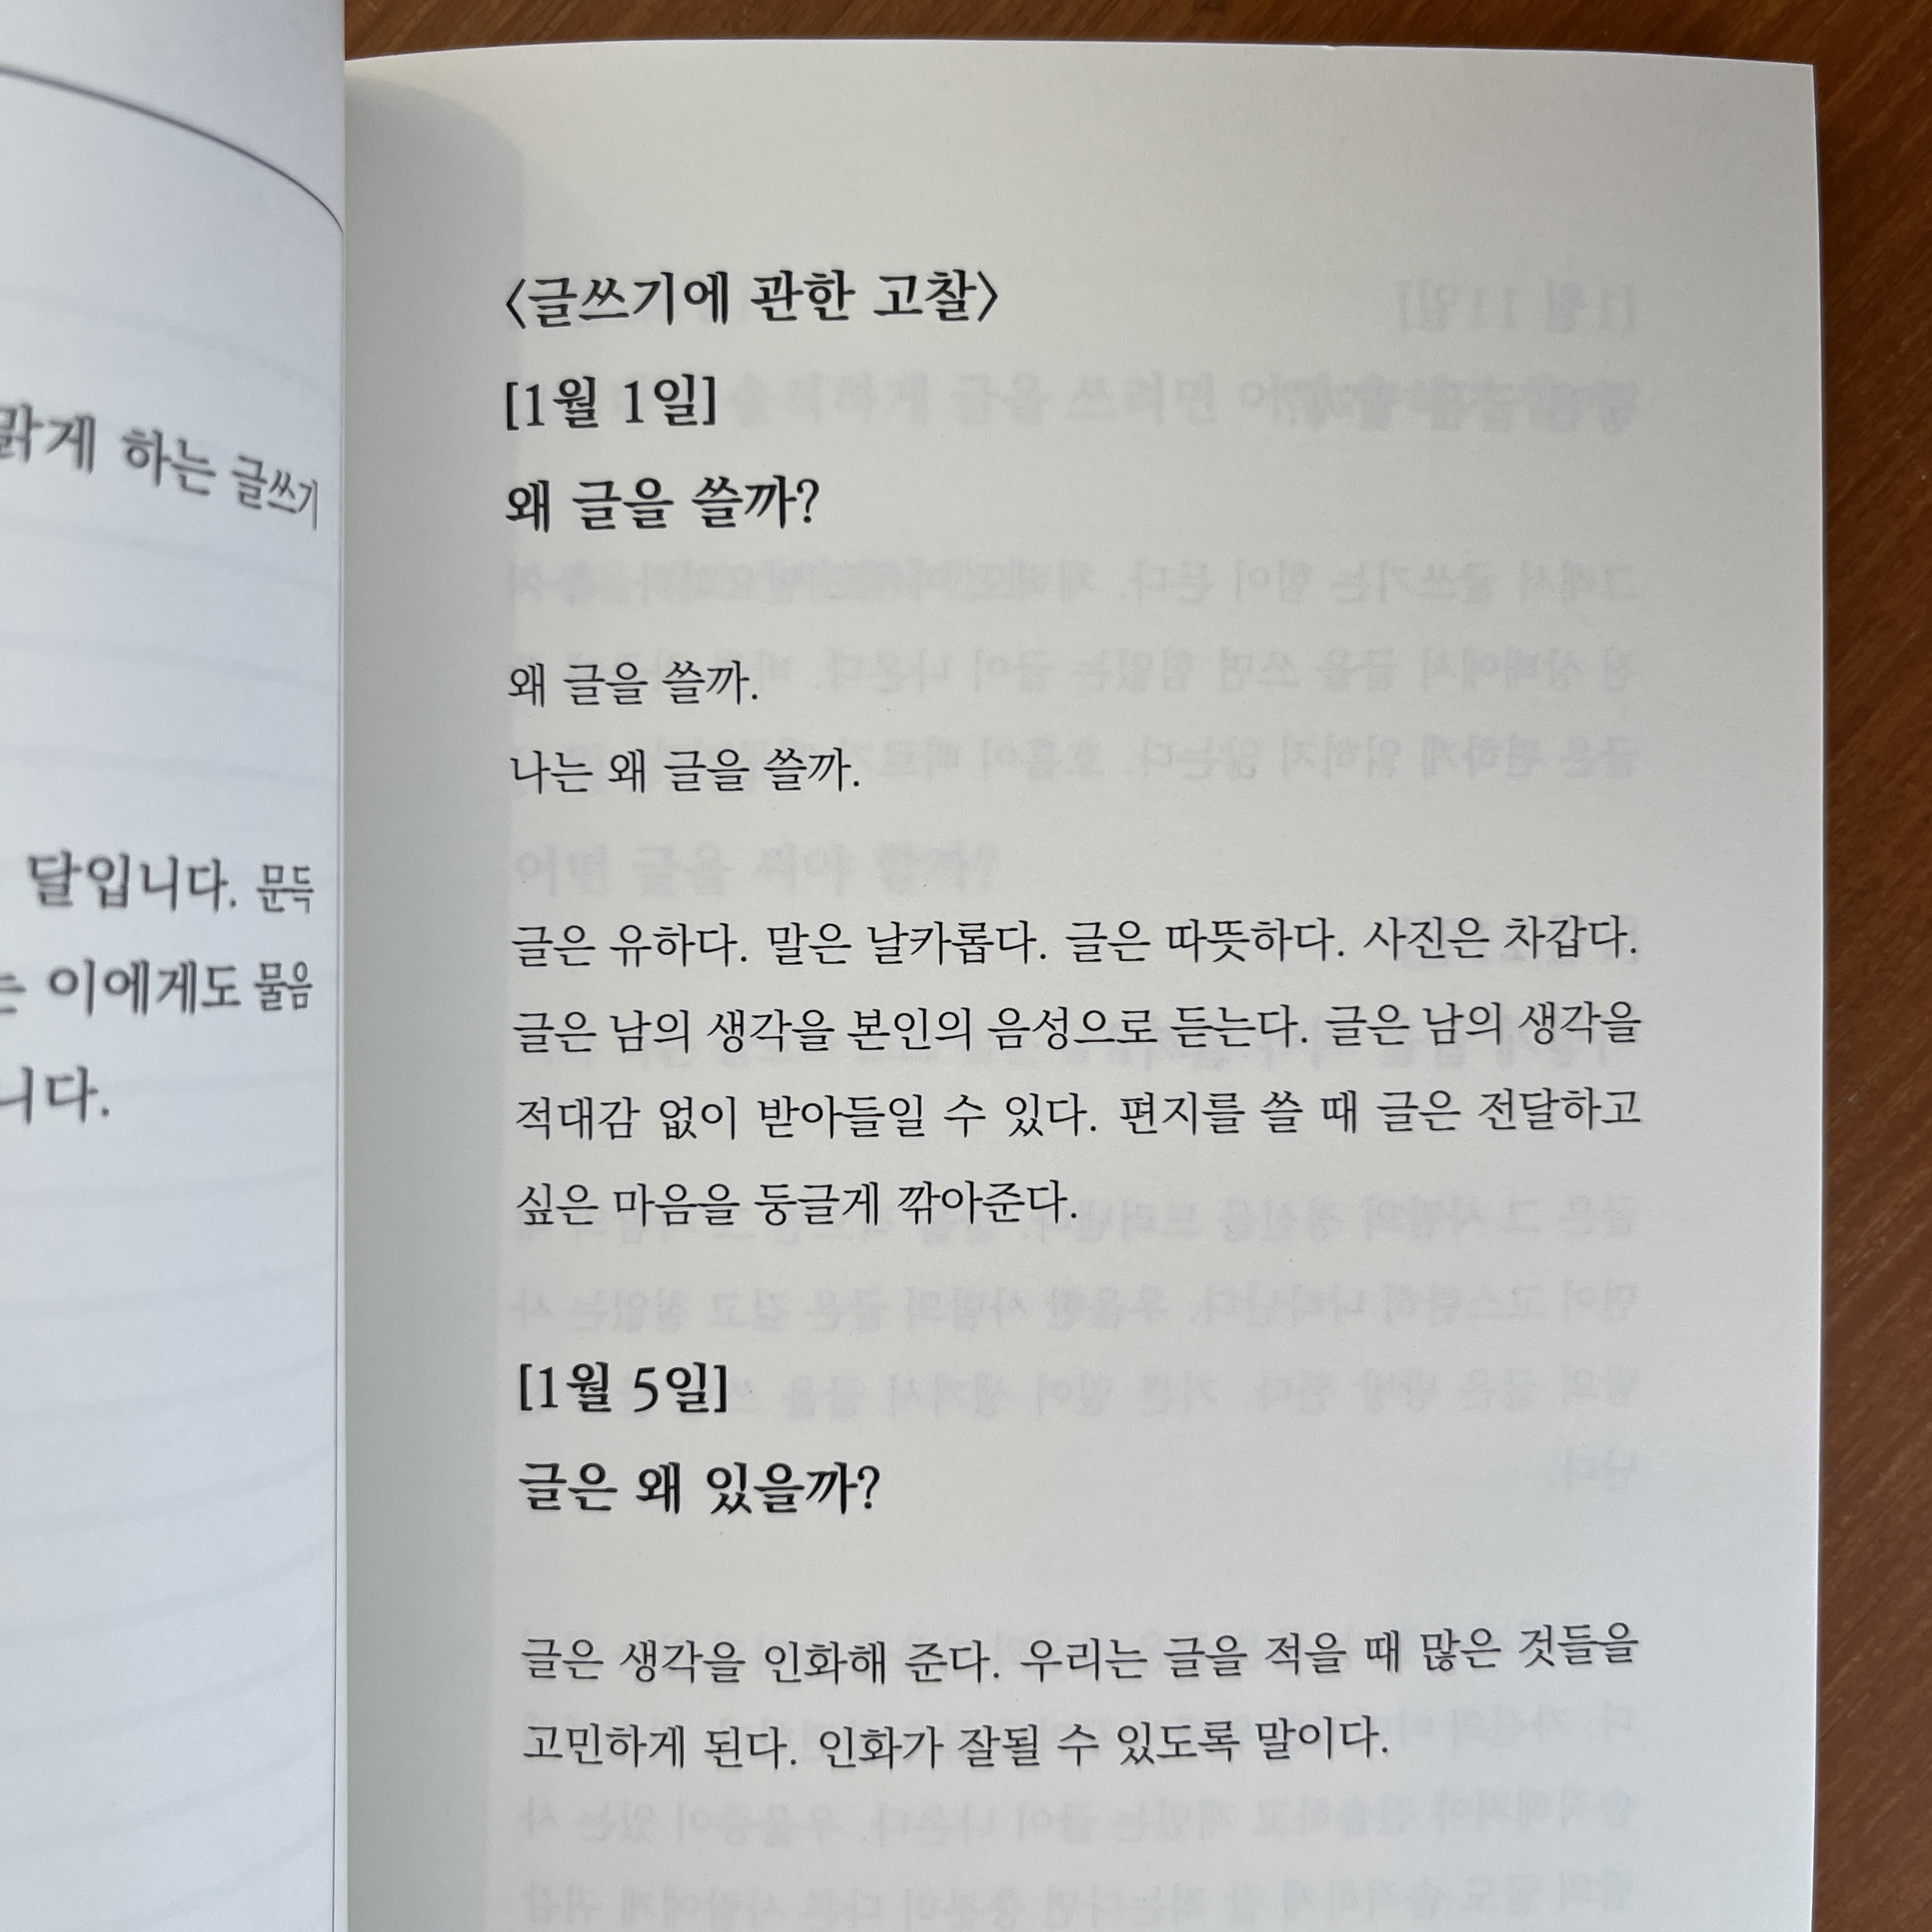 맑게 하는 글쓰기
달입니다. 문득
는 이에게도 물음
니다.
〈글쓰기에 관한 고찰〉
[1월 1일]
왜 글을 쓸까?
왜 글을 쓸까.
나는 왜 글을 쓸까.
글은 유하다. 말은 날카롭다. 글은 따뜻하다. 사진은 차갑다.
글은 남의 생각을 본인의 음성으로 듣는다. 글은 남의 생각을
적대감 없이 받아들일 수 있다. 편지를 쓸 때 글은 전달하고
싶은 마음을 둥글게 깎아준다.
[1월 5일]
글은 왜 있을까?
글은 생각을 인화해 준다. 우리는 글을 적을 때 많은 것들을
고민하게 된다. 인화가 잘될 수 있도록 말이다.